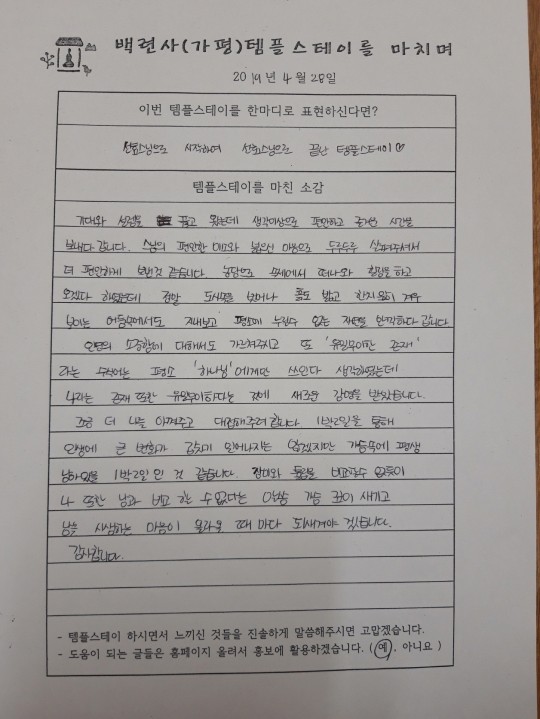 백련사(가평)템플스테이를 마치며
2019년 4월 28일
이번 템플스테이를 한마디로 표현하신다면?
선효스님으로 시작하여 선효스님으로 끝난 템플스테이♡
템플스테이를 마친 소감
기대와 설렘을 품고 왔는데 생각이상으로 편안하고 즐거운 시간을
보내다 갑니다. 스님의 편안한 미소와 넓으신 마음으로 두루두루 살펴주셔서
더 편안하게 보낸것 같습니다. 농담으로 속세에서 떠나와 힐링을 하고
오겠다 하였는데 정말 도시를 벗어나 흙도 밟고 한치 앞이 겨우
보이는 어둠속에서도 지내보고 평소에 누릴수 없는 자연을 만끽하다 갑니다
인연의 소중함에 대해서도 가르쳐주시고 또 '유일무이한 존재'
라는 수식어는 평소 '하나님'에게만 쓰인다 생각하였는데
나라는 존재 또한 유일무이하다는 것에 새로운 감명을 받았습니다.
조금 더 나를 아껴주고 대접해주려 합니다. 1박2일을 통해
인생에 큰 변화가 갑자기 일어나지는 않겠지만 가슴속에 평생
남아있을 1박2일인 것 같습니다. 장미와 들꽃을 비교할수 없듯이
나 또한 남과 비교 할 수 없다는 말씀 가슴 깊이 새기고
남을 시샘하는 마음이 올라올 때 마다 되새겨야 겠습니다.
감사합니다.
- 템플스테이 하시면서 느끼신 것들을 진솔하게 말씀해주시면 고맙겠습니다.
- 도움이 되는 글들은 홈페이지 올려서 홍보에 활용하겠습니다. (예, 아니요)